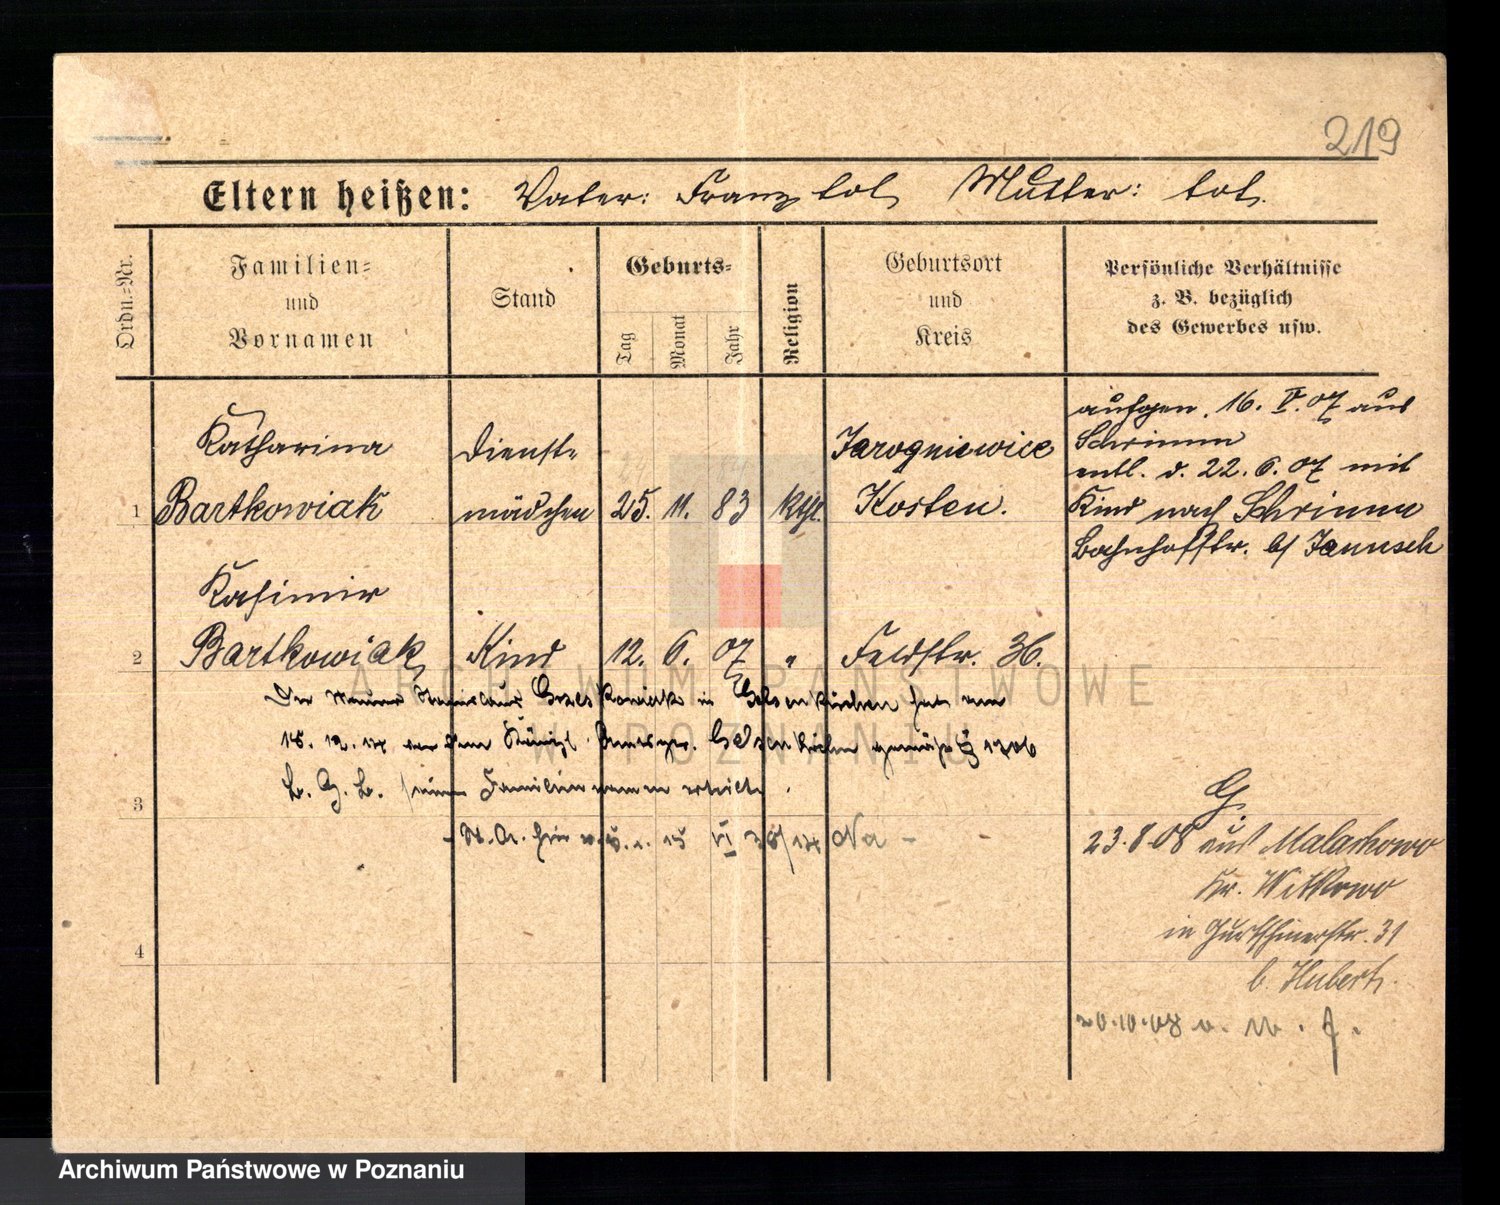 219
Eltern heißen: Vater: Franz tot, Mutter: tot.
Ordn.-Nr.
Familien- und Vornamen
Stand
Geburts-
Tag
Monat
Jahr
Religion
Geburtsort und Kreis
Persönliche Verhältnisse
z. B. bezüglich
des Gewerbes usw.
1
Katharina
Bartkowiak
Dienst-
mädchen
25. 11. 83
kth.
Jarogniewice
Kosten.
aufgen. 16. V. 07 aus
Schrimm
entl. d. 22. 6. 07 mit
Kind nach Schrimm
Bahnhofstr. b/ Janusch
2
Kasimir
Bartkowiak
Kind
12. 6. 07
"
Feldstr. 36.
Der Maurer Stanislaus in Gelsenkirchen hat am
18. 12. 14 vor dem Königl. Amtsger. Gelsenkirchen gemäß § 1706
B. G. B. seinen Familiennamen erteilt.
3
VI 38/14
G.
23.8.08 aus Malachowo
Kr. Witkowo
in 31
b. Hubert.
4
20.10.08 v. W. J.
ARCHIWUM PAŃSTWOWE
W POZNANIU
Archiwum Państwowe w Poznaniu